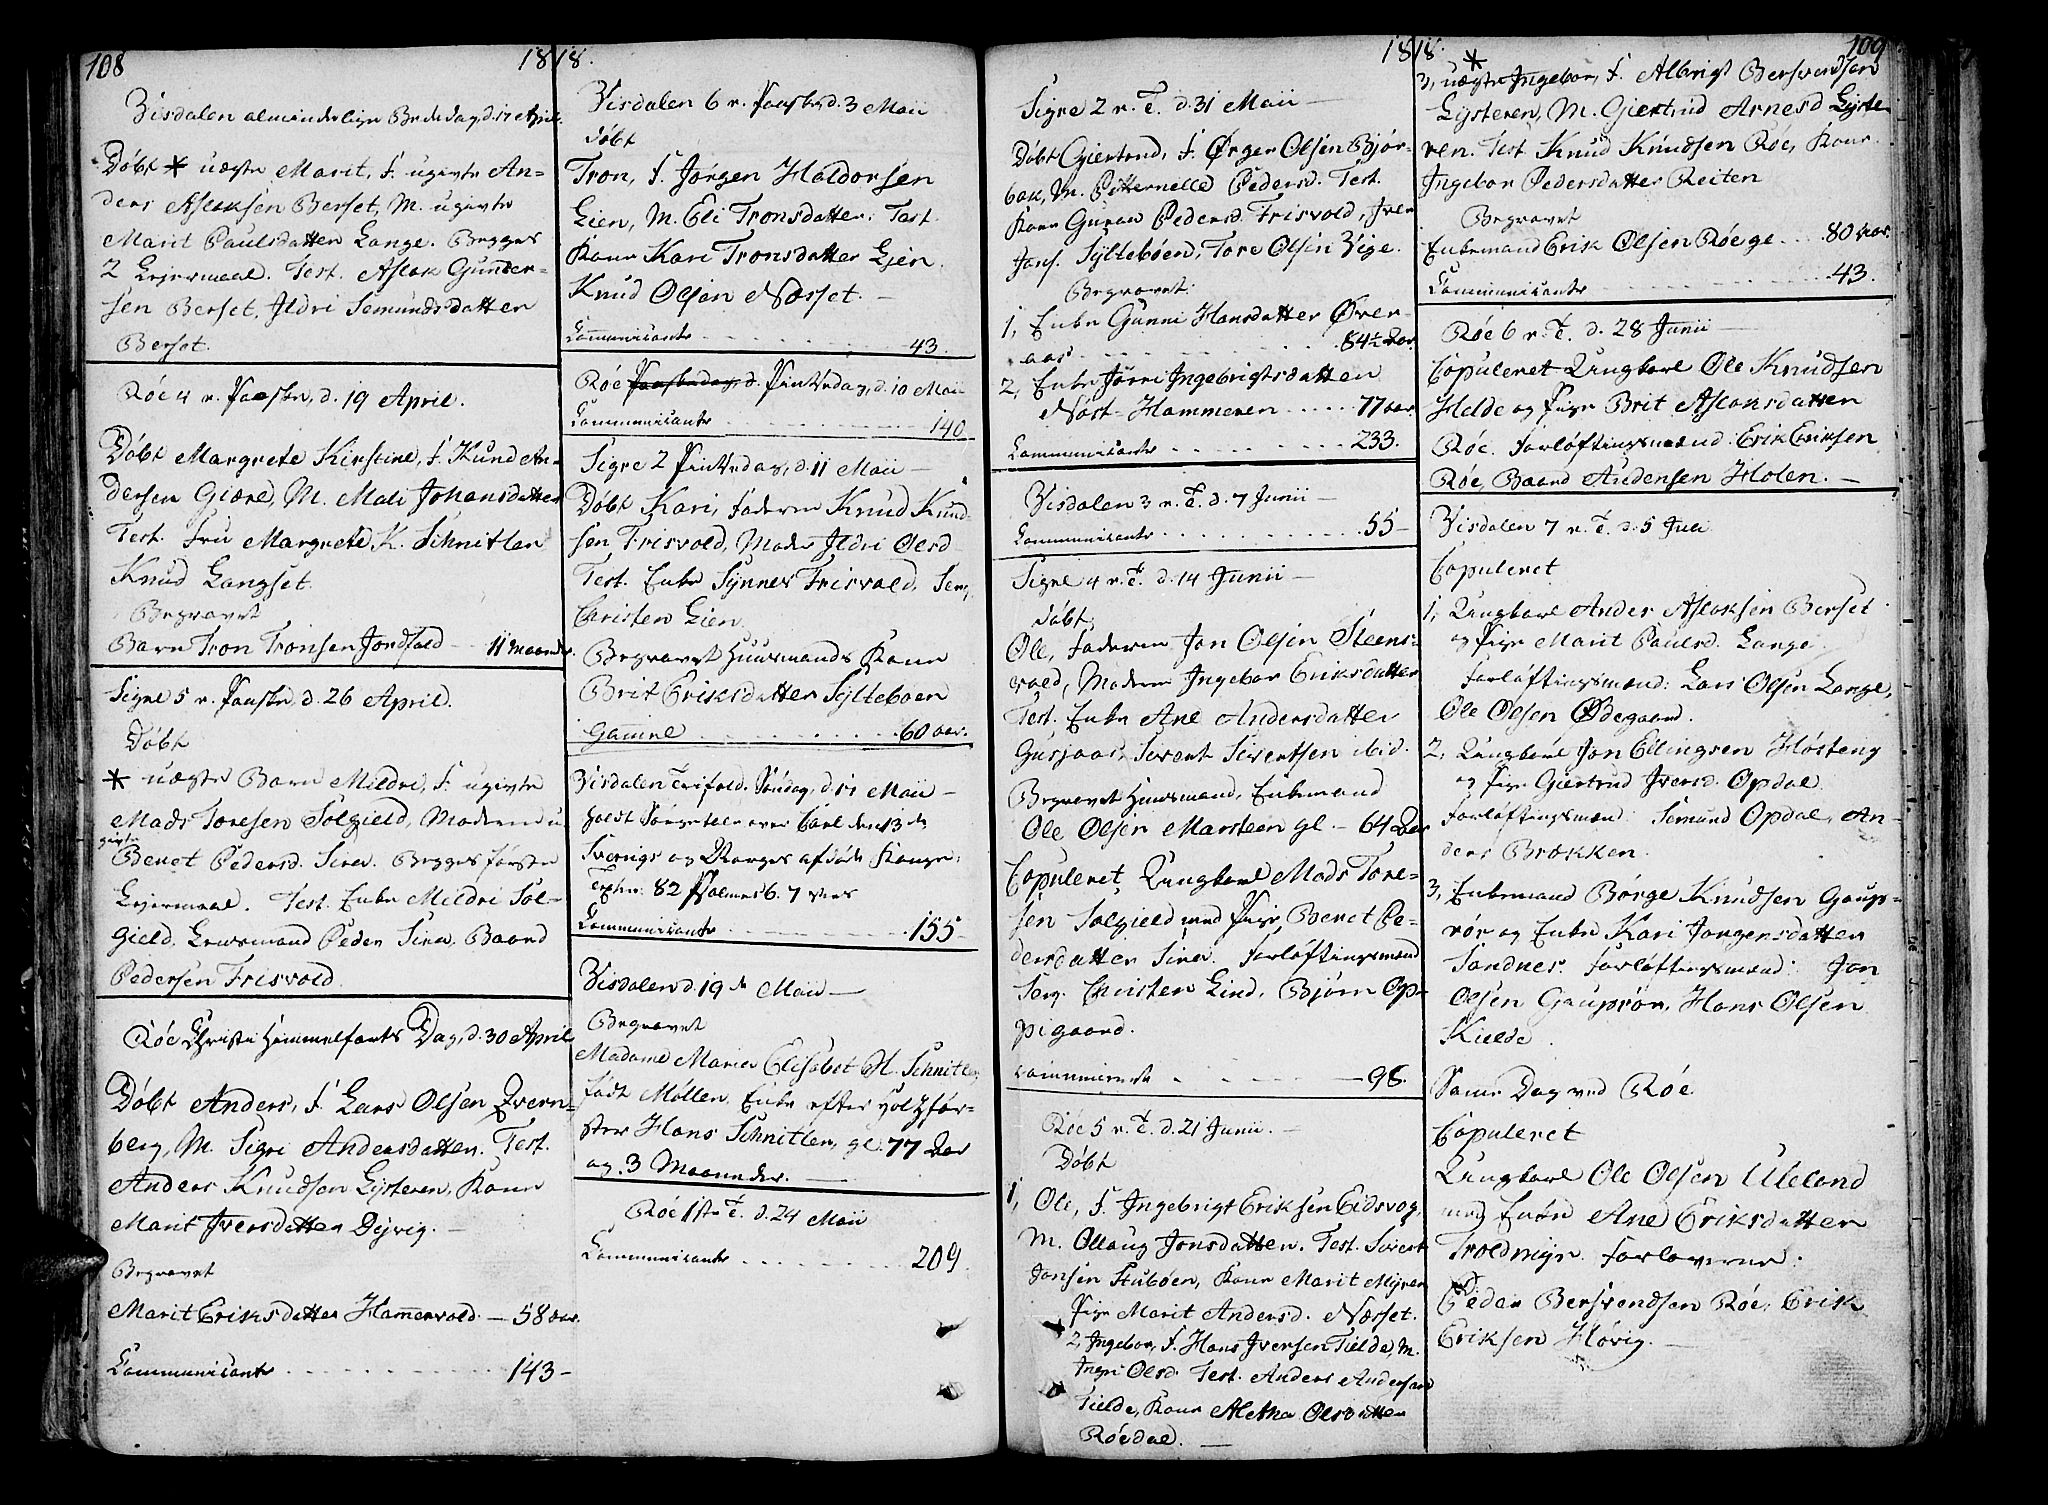 108
1818.
Visdalen almindelige Bededag, d. 17 April.
Døbt * uægte Marit, F. ugivte An-
ders Aslaksen Berset, M. ugivte
Marit Paulsdatter Lange. Begges
2 Leiermaal. Test. Aslak Gunder-
sen Berset, Ildri Semundsdatter
Berset.
Røe 4 p. Paaske, d. 19 April.
Døbt Margrete Kirstine, F. Knud An-
dersen Giære, M. Mali Johansdatter
Test. Fru Margrete K. Schnitler
Knud Langset.
Begravet
Barn Tron Tronsen Jordfald - 11 Maaneder.
Sigre 5 p. Paaske, d. 26 April.
Døbt
* uægte Barn Mildri, F. ugivte
Mads Toresen Solgield, Moderen u
givte
Beret Pedersd. Sira. Begges første
Leiermaal. Test. Enke Mildri Sol-
gield, Lensmand Peder Sira, Baard
Pedersen Frisvold.
Røe Christi Himmelfarts Dag, d. 30 April
Døbt Anders, F. Lars Olsen Qvern-
berg, M. Sigri Andersdatter. Test.
Anders Knudsen Lysteren, Kone
Marit Iversdatter Dyrvig. -
Begravet
Marit Eriksdatter Hamervold. - 58 aar.
Communicante . . . . . . . 143 -
Visdalen 6 p. Paaske d. 3 Maii
Døbt
Tron, F. Jørgen Haldorsen
Lien, M. Eli Tronsdatter. Test.
Kone Kari Tronsdatter Lien.
Knud Olsen Næsset. -
Communicante . . . . . . . 43.
Røe Paaskedag, d. Pintsedag, d. 10 Maii
Communicante . . . . . . . 140
Sigre 2 Pintsedag, d. 11 Maii -
Døbt Kari, Faderen Knud Knud-
sen Frisvold, Moder Ildri Olsd
Test. Enke Synnev Frisvold, Serg.
Christen Lien.
Begravet Huusmands Kone
Brit Eriksdatter Sylteboen
Gamle . . . . . . . 60 aar.
Visdalen Trifold. Søndag, d. 17 Maii -
holdt Sørgetale over Carl den 13de
Sverigs og Norges afdøde Konge.
Texten: 82 Psalmes 6. 7 vers
Communicante . . . . . . . 155 -
Visdalen d. 19de Maii -
Begravet
Madame Maria Elisabet H. Schnitler,
født Møller. Enke efter Holtzfør-
ster Hans Schnitler, gl. 77 Aar
og 3 Maaneder. -
Røe 1ste p. T. d. 24 Maii
Communicante . . . . . . . 209.
1818.
109
Sigre 2 p. T. d. 31 Maii -
Døbt Giertrud, F. Ørger Olsen Bjør-
bak, M. Pitternelle Pedersd. Test.
Kone Guran Pedersd. Frisvold, Iver
Jons. Syltebøen, Tore Olsen Vige.
Begravet.
1, Enke Gunni Hansdatter Øver-
aas . . . . . . . 84½ Aar.
2, Enke Jørri Ingebrigtsdatter
Nøst-Hammeren . . . . . 77 aar
Communicante . . . . . . . 233.
Visdalen 3 p. T. d. 7 Junii -
Communicante . . . . . . . 55 -
Sigre 4 p. T. d. 14 Junii -
Døbt
Ole, Faderen Jon Olsen Steens-
vold, Moderen Ingebor Eriksdatter
Test. Enke Ane Andersdatter
Gusjaas, Sivert Sivertsen ibid.
Begravet Huusmand, Enkemand
Ole Olsen Marsteen gl. - 64 Aar
Copuleret Ungkarl Mads Tore-
sen Solgield med Pige Beret Pe-
dersdatter Sira. Forløftingsmænd
Serg. Christen Lind, Bjørn Op-
pigaard.
Communicante . . . . . - 98.
Røe 5 p. T. d. 21 Junii. -
Døbt
1, Oli, F. Ingebrigt Eriksen Eidsvog,
M. Ollaug Jonsdatter. Test. Sivert
Jonsen Stubøen, Kone Marit Myren
Pige Marit Andersd. Næsset.
2, Ingebor, F. Hans Iversen Tielde, M.
Ingri Olsd. Test. Anders Andersen
Tielde, Kone Aletha Olsdatter
Røedal. -
*
3, uægte Ingebor, F. Albrigt Bersvendsen
Lysteren, M. Giertrud Arnesd Lyste-
ren. Test Knud Knudsen Røe, Kone
Ingebor Pedersdatter Reiten
Begravet
Enkemand Erik Olsen Røe gl. . . . 80 aar.
Communicante . . . . . . . 43.
Røe 6 p. T. d. 28 Junii -
Copuleret Ungkarl Ole Knudsen
Helde og Pige Brit Aslaksdatter
Røe. Forløftingsmænd: Erik Eriksen
Røe, Baard Andersen Holen. -
Visdalen 7 p. T. d. 5 Juli
Copuleret
1, Ungkarl Anders Aslaksen Berset
og Pige Marit Paulsd. Lange.
Forløftingsmænd: Lars Olsen Lange,
Ole Olsen Ødegaard.
2, Ungkarl Jon Ellingsen Høsteng
og Pige Giertrud Iversd. Opdal.
Forløftingsmænd: Semund Opdal, An-
ders Brækken.
3, Enkemand Børge Knudsen Gaup-
rør og Enke Kari Jørgensdatter
Sandnes. Forløftingsmænd: Jon
Olsen Gauprør, Hans Olsen
Kielde.
Same Dag ved Røe
Copuleret
Ungkarl Ole Olsen Uleland
med Enken Ane Eriksdatter
Troldmyr. Forloverne:
Peder Bersvendsen Røe, Erik
Eriksen Høvig. -